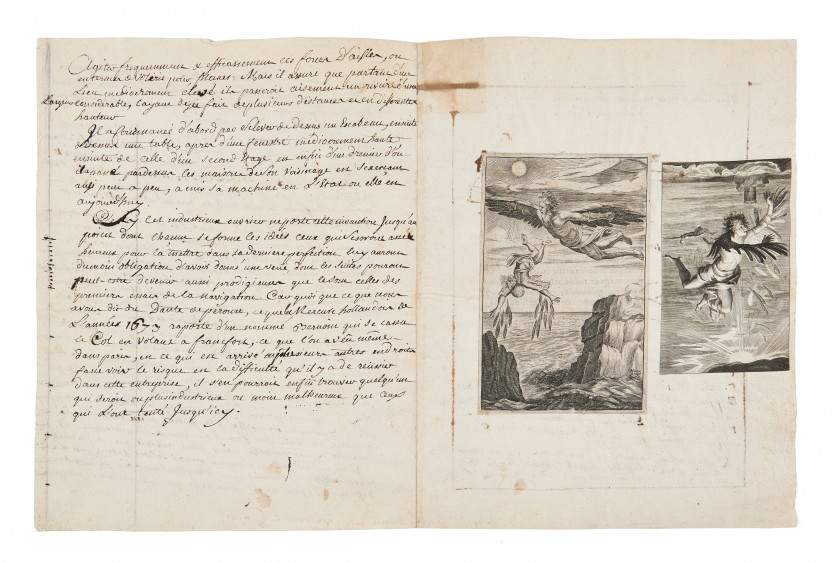 Agiter frequemment & efficassement ces forces D'aisles, ou
en termes de Volerie pour planer: Mais il assure que partant d'un
Lieu mediocrement elevé il passeroit aisement un riviere d'une
Largeur considerable, layant deja fait de plusieurs distances et en differentes
hauteur
Il a commancé d'abord par S'elever de Dessus un Escabeau, ensuite
dessus une table, apres d'une fenestre mediocrement haute
ensuite de celle d'un second Etage et enfin d'un Grenier d'ou
il a passé pardessus les maisons de son Voisinage et s'exersant
ainsi peu a peu, a mis sa machine en L'Etat ou elle est
aujourd'huy
Si cet industrieux ouvrier ne porte cette invantion Jusqu'au
point dont chacun se forme les idées ceux qui seront assez
heureux pour la mettre dans sa derniere perfection luy auront
du moins obligation d'avoir donné une veüe dont les suites pourront
peut estre devenir aussi prodigieuses que le sont celles des
premiers essais de la navigation Car quoi que ce que nous
avons dit du Dante de perouse, ce que le Mercure hollandois de
L'année 1673 raporte d'un nommé Bernoin qui se cassa
le Col en Volant a francfort, ce que l'on a veü meme
dans paris, et ce qui est arrivé en plusieurs autres endroits
fasse voir le risque et la difficulté qu'il y a de reussir
dans cette entreprise, il s'en pourroit enfin trouver quelqu'un
qui seroit ou plus industrieux ou moins malheureux que ceux
qui L'ont tenté Jusqu'icy.